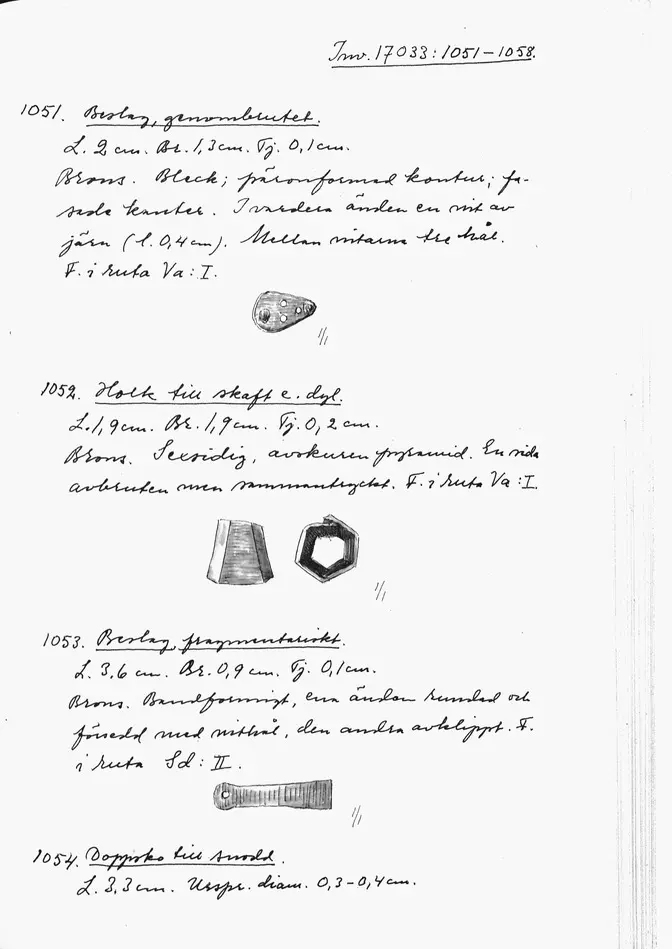 Inv. 17033:1051-1058.
1051. Beslag, genombrutet.
L. 2 cm. Br. 1,3 cm. Tj. 0,1 cm.
Brons. Bleck; päronformad kontur; fa-
sade kanter. I vardera änden en nit av
järn (l. 0,4 cm). Mellan nitarna tre hål.
F. i ruta Va: I.
1/1
1052. Holk till skaft e. dyl.
L. 1,9 cm. Br. 1,9 cm. Tj. 0,2 cm.
Brons. Sexsidig, avskuren pyramid. En sida
avbruten men sammantryckt. F. i ruta Va: I.
1/1
1053. Beslag, fragmentariskt.
L. 3,6 cm. Br. 0,9 cm. Tj. 0,1 cm.
Brons. Bandformigt, ena änden rundad och
försedd med nithål, den andra avklippt. F.
i ruta Sd: II.
1/1
1054. Doppsko till snodd.
L. 3,3 cm. Urspr. diam. 0,3-0,4 cm.